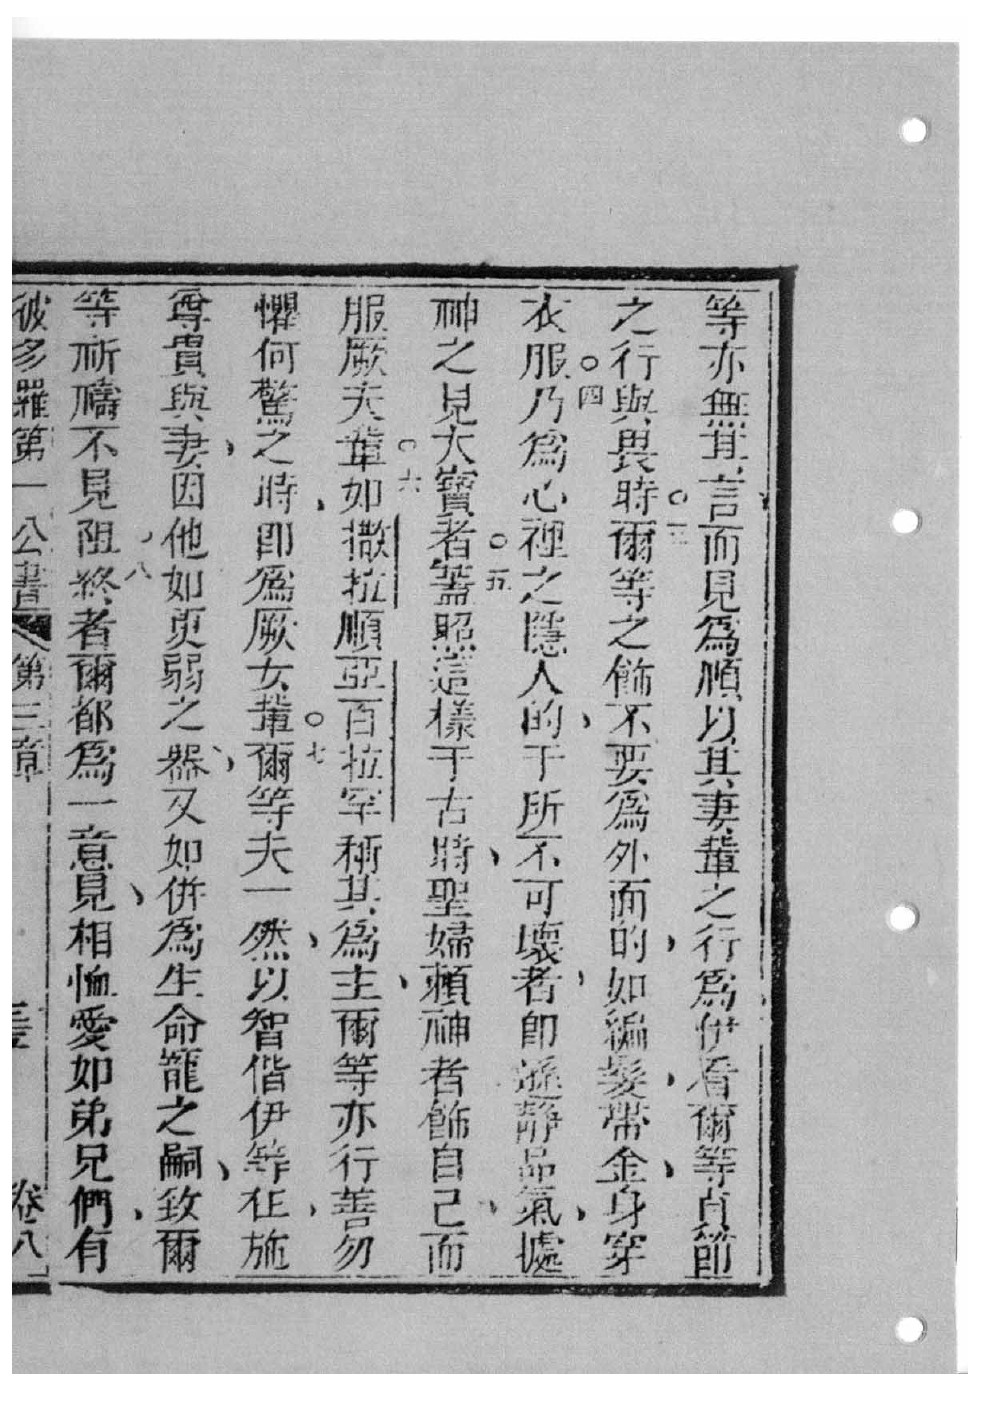 等亦無其言而見為順以其妻輩之行為伊看爾等貞節
之行與畏時○三爾等之飾不要為外面的如編髮帶金身穿
衣服○四乃為心裡之隱人的于所不可壞者即遜靜品氣處
神之見大寶者○五蓋照這樣于古時聖婦賴神者飾自己而
服厥夫輩○六如撒拉順亞百拉罕稱其為主爾等亦行善勿
懼何驚之時即為厥女輩○七爾等夫一然以智偕伊等在施
尊貴與妻因他如更弱之器又如併為生命寵之嗣致爾
等祈禱不見阻○八終者爾都為一意見相恤愛如弟兄們有
彼多羅第一公書 第三章 三 卷八